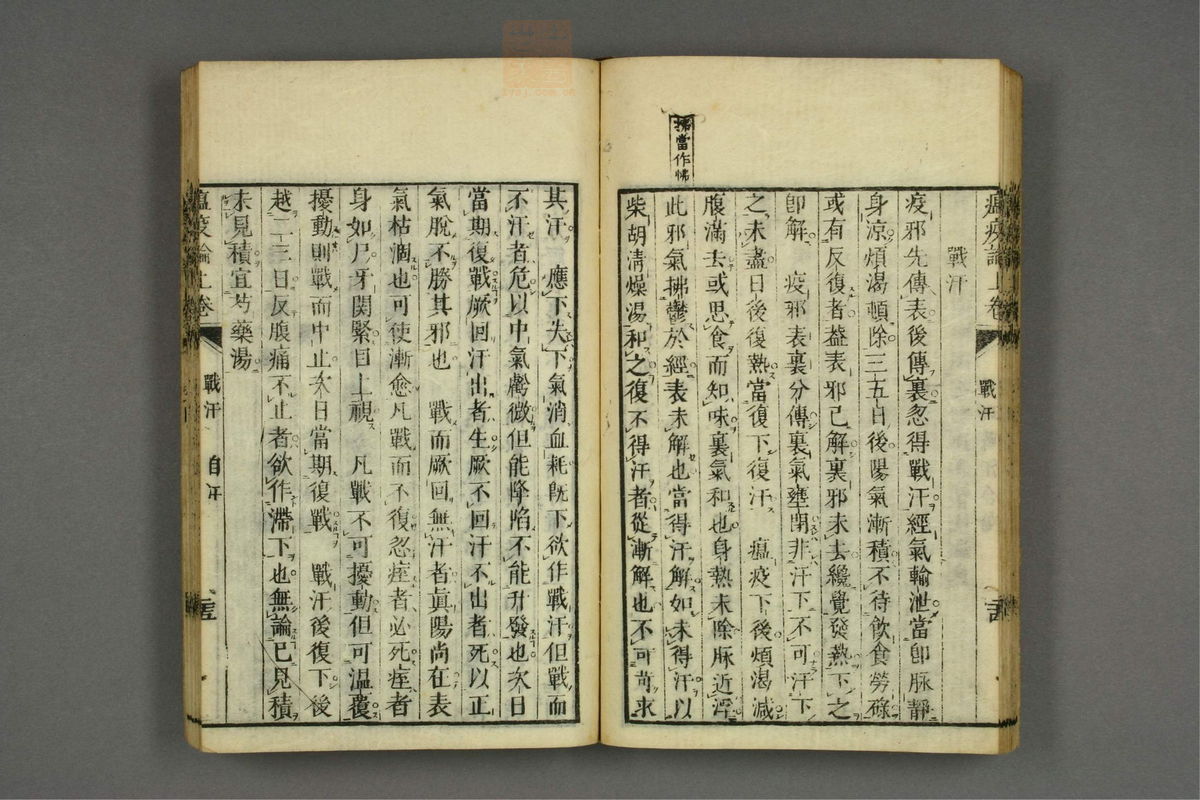 瘟疫論上卷
戰汗
戰汗
疫邪先傳表後傳裏忽得戰汗經氣輸泄當卽脉靜
身涼煩渴頓除三五日後陽氣漸積不待飮食勞碌
或有反復者葢表邪已解裏邪未去纔覺發熱下之
卽解　疫邪表裏分傳裏氣壅閉非汗下不可汗下
之未盡日後復熱當復下復汗　瘟疫下後煩渴減
腹滿去或思食而知味裏氣和也身熱未除脉近浮
此邪氣拂鬱於經表未解也當得汗解如未得汗以
柴胡淸燥湯和之復不得汗者從漸解也不可苛求
拂當作怫
其汗　應下失下氣消血耗旣下欲作戰汗但戰而
不汗者危以中氣虧微但能降陷不能升發也次日
當期復戰厥回汗出者生厥不回汗不出者死以正
氣脫不勝其邪也　戰而厥回無汗者眞陽尚在表
氣枯涸也可使漸愈凡戰而不復忽痙者必死痙者
身如尸牙関緊目上視　凡戰不可擾動但可温覆
擾動則戰而中止次日當期復戰　戰汗後復下後
越二三日反腹痛不止者欲作滯下也無論已見積
未見積宜芍藥湯
瘟疫論上卷
戰汗
自汗